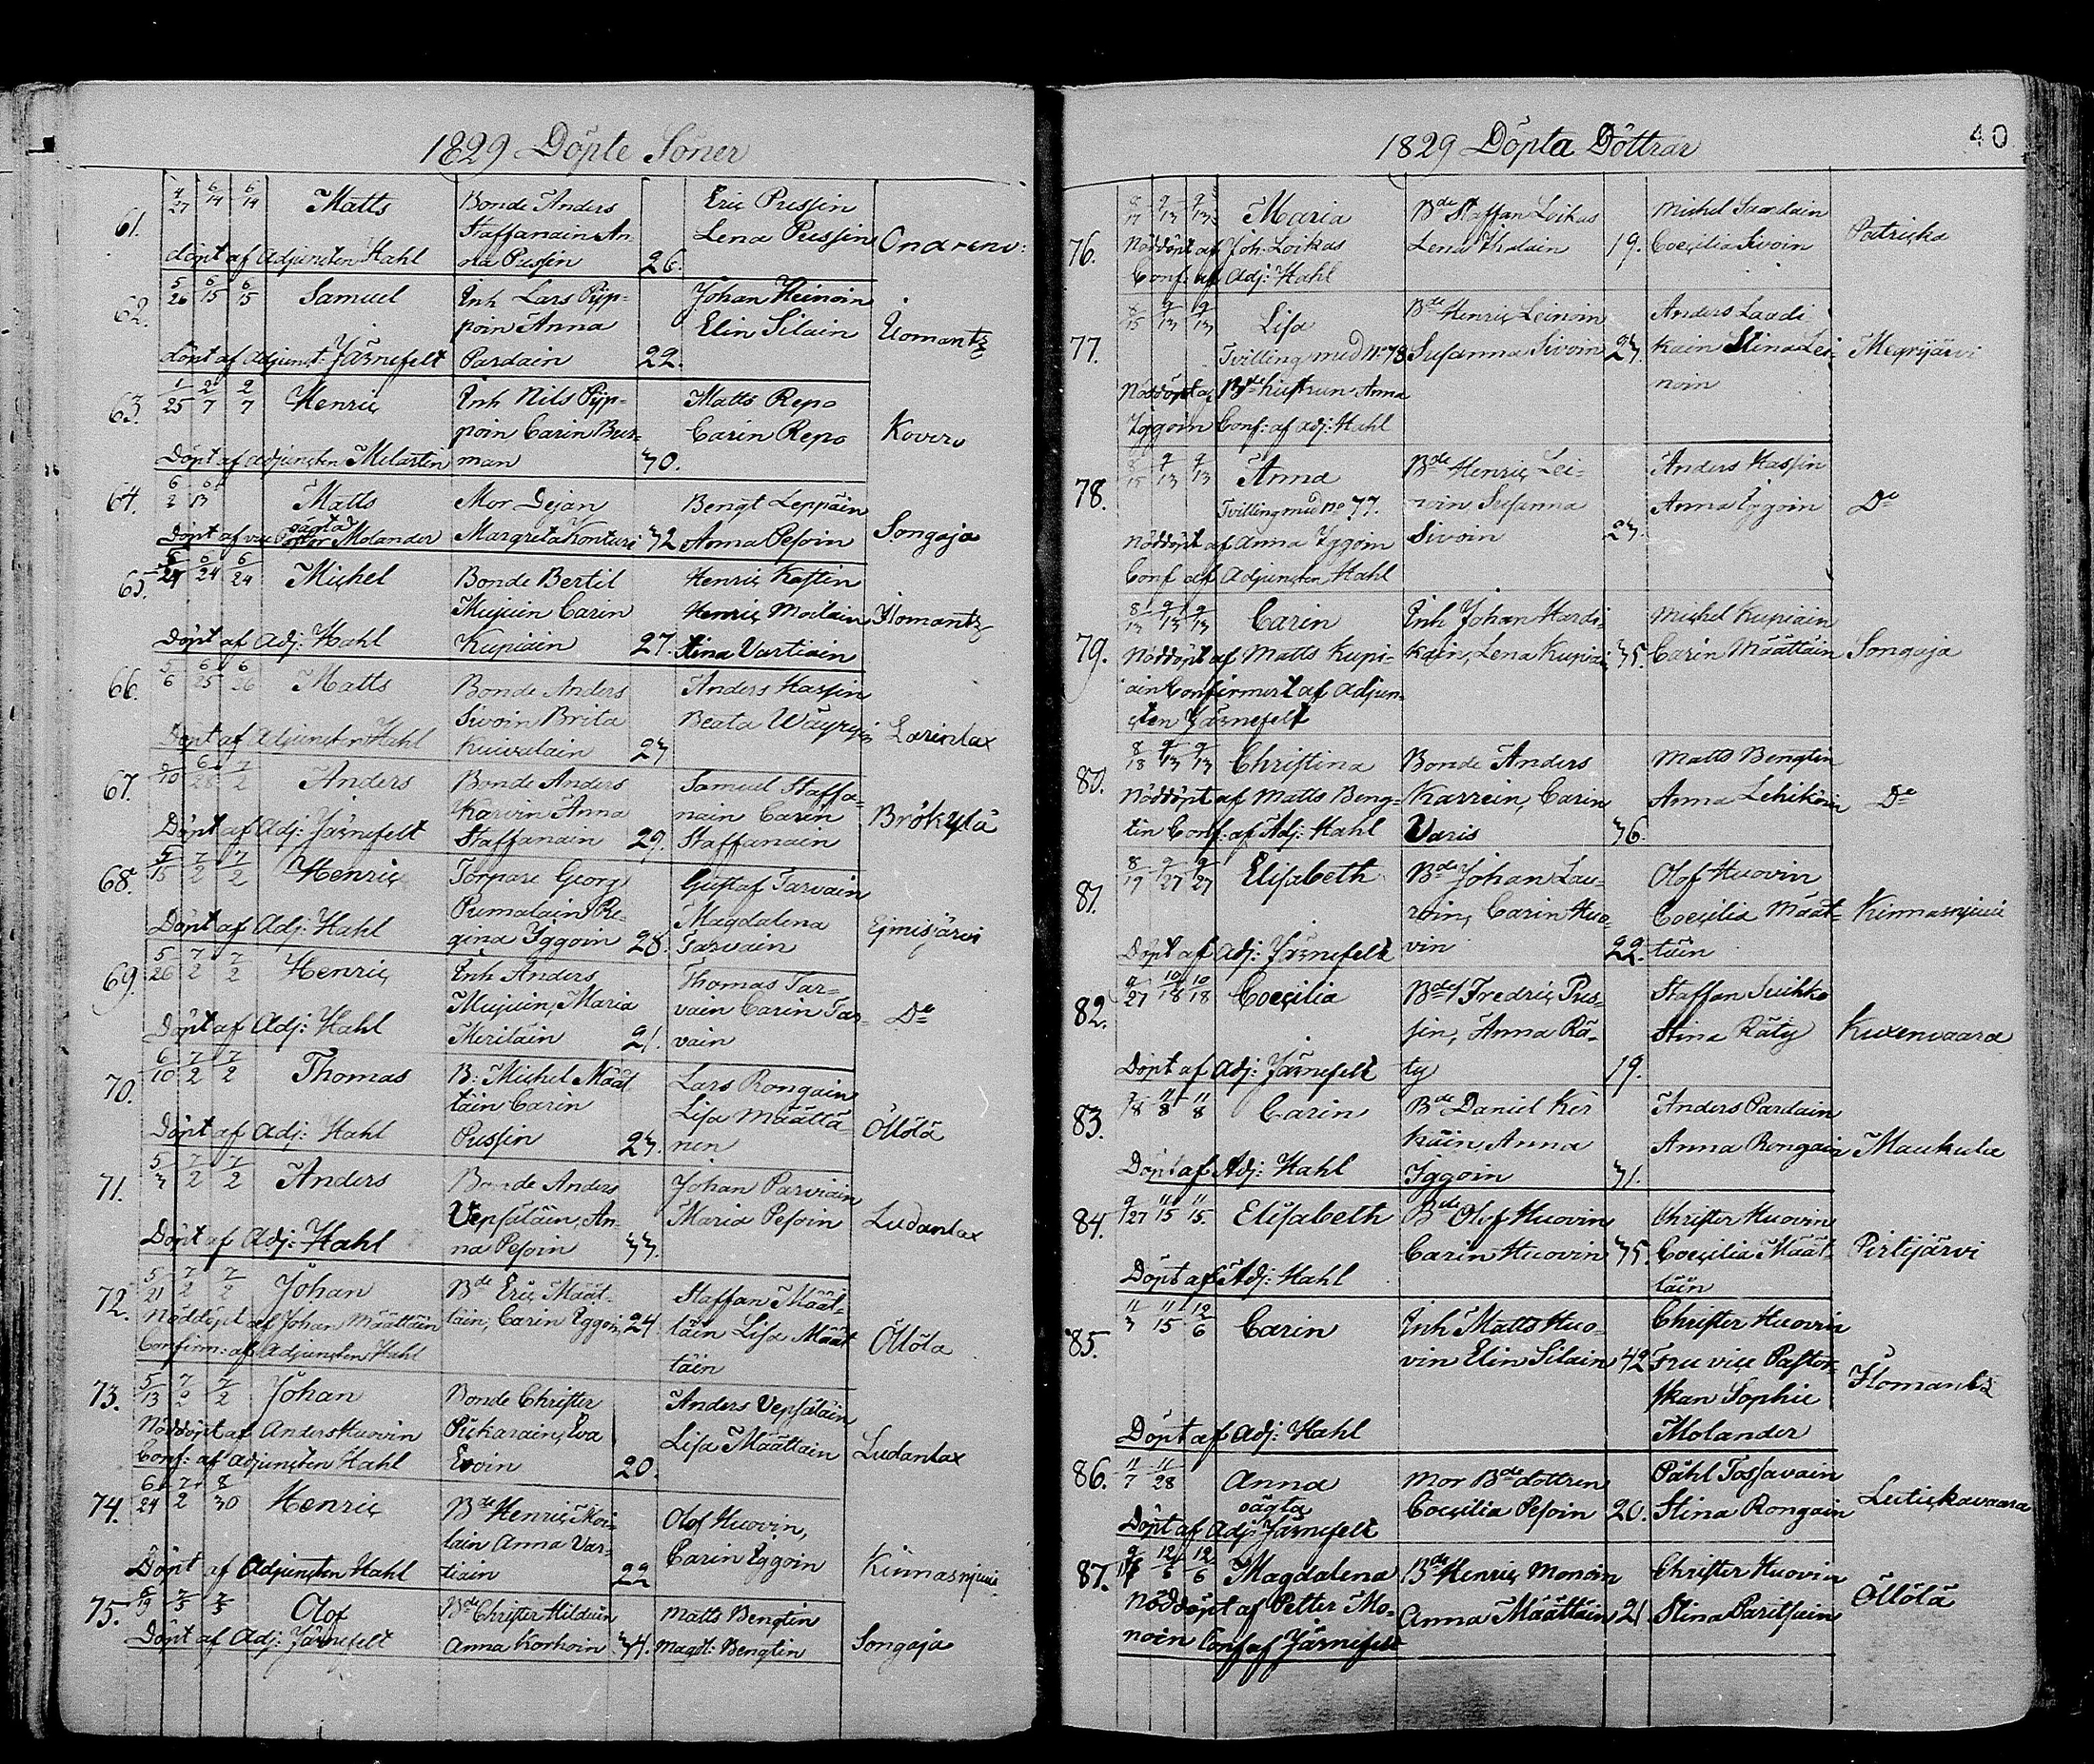 1829 Döpte Söner
61. 4/27 6/14 6/14 Matts Bonde Anders Eric Pussin
Staffanain An- Lena Pussin
döpt af Adjuncten Hahl na Pussin 26.
62. 5/26 6/15 6/15 Samuel Inh Lars Pyp- Johan Heinoin
poin Anna Elin Silain
döpt af Adjunct: Järnefelt Pardain 22.
63. 1/25 2/7 2/7 Henric Inh Nils Pyp- Matts Repo
poin Carin Bur- Carin Repo Kovero
Döpt af adjuncten Melartin man 30.
64. 6/2 6/13 Matts Mor Dejan Bengt Leppäin
oägta Songaja
Döpt af vice Pastor Molander Margreta Konturi 32 Anna Pesoin
65. 5/24 6/24 6/24 Michel Bonde Bertil Henric Kastin
Mujuin Carin Henric Moilain Ilomantz
Döpt af Adj: Hahl Kupiain 27. Stina Vartiain
66. 5/6 6/25 6/26 Matts Bonde Anders Anders Hassin
Sivoin Brita Beata Wäyryin Larinlax
Döpt af Adjuncten Hahl Kuivalain 23
67. 6/28 7/2 Anders Bonde Anders Samuel Staffa-
Karvin Anna nain Carin Brökylä
Döpt af Adj: Järnefelt Staffanain 29. Staffanain
68. 5/15 7/2 7/2 Henric Torpare Georg Gustaf Tarvain
Pumalain Re- Magdalena
Döpt af Adj: Hahl gina Iggoin 28. Tarvain
69. 5/26 7/2 7/2 Henric Inh Anders Thomas Tar-
Mujuin, Maria vain Carin Tar- Do
Döpt af Adj: Hahl Meriläin 21. vain
70. 6/10 7/2 7/2 Thomas B: Michel Määt Lars Rongain
täin Carin Lisa Määttä-
Döpt af Adj: Hahl Pussin 23. nen Öllölä
71. 5/3 7/2 7/2 Anders Bonde Anders Johan Parviain
Vepsäläin, An- Maria Pesoin Ludanlax
Döpt af Adj: Hahl na Pesoin 33.
72. 5/21 7/2 7/2 Johan Bde Eric Määt- Staffan Määt-
Nöddöpt af Johan Määttäin täin, Carin Eggoin 24. täin Lisa Määt Öllölä
Confirm: af Adjuncten Hahl täin
73. 5/13 7/2 7/2 Johan Bonde Christer Anders Vepsäläin
Nöddöpt af Anders Huovin Pickarain, Eva Lisa Määttäin Ludanlax
Conf: af adjuncten Hahl Evoin 20.
74. 6/24 7/2 8/30 Henric Bde Henric Moi- Olof Huovin,
lain Anna Var- Carin Eggoin
Döpt af Adjuncten Hahl tiain 22 Kinnasnjemi
75. 6/19 7/5 7/5 Olof Bde Christer Hilduin Matts Bengtin
Döpt af Adj: Järnefelt Anna Korhoin 34. Magd: Bengtin Songaja
1829 Döpta Döttrar 40
76. 8/17 9/13 9/13 Maria Bde Staffan Loikas Michel Saardain
Nöddöpt af Joh: Loikas Lena Ihalain 19. Coecilia Sivoin Patricka
Conf: af Adj: Hahl
77. 8/15 9/13 9/13 Lisa Bde Henric Leinoin Anders Laadi
Tvilling med No 78 Susanna Sivoin 23. kain Stina Lei- Megrijärvi
Nöddöpt af Bde hustrun Anna noin
Iggoin Conf: af adj: Hahl
78. 8/15 9/13 9/13 Anna Bde Henric Lei- Anders Hassin
Tvilling med no 77. noin, Susanna Anna Eggoin Do
Nöddöpt af Anna Iggoin Sivoin 23.
Conf af Adjuncten Hahl
79. 8/13 9/13 9/13 Carin Inh Johan Hardi- Michel Kupiain
Nöddöpt af Matts Kupi- kain, Lena Kupiai 35. Carin Määttäin Songaja
ain Confirmert af adjun-
cten Järnefelt
80. 8/18 9/13 9/13 Christina Bonde Anders Matts Bengtin
Nöddöpt af Matts Beng- Karrein, Carin Anna Lehikoin Do
tin Conf: af Adj: Hahl Varis 36.
81. 8/19 9/27 9/27 Elisabeth Bde Johan Lau- Olof Huovin
Carin Huo- Coecilia Määt- Kinnasnjemi
Döpt af Adj: Järnefelt vin 22. täin
82. 9/27 10/18 10/18 Coecilia Bde Fredric Pus- Staffan Suihko
sin, Anna Rä- Stina Räty Kuxenvaara
Döpt af Adj: Järnefelt ty 19.
83. 11/8 11/8 Carin Bde Daniel Ker Anders Pardain
käin, Anna Anna Rongain Maukula
Döpt af Adj: Hahl Iggoin 31.
84. 9/27 11/15 11/15. Elisabeth Bde Olof Huovin Christer Huovin
Carin Huovin 35. Coecilia Määt Pirtijärvi
Döpt af Adj: Hahl täin
85. 11/3 11/15 12/6 Carin Inh Matts Huo- Christer Huovin
vin Elin Silain 42 Fru vice Pastor- Ilomantz
skan Sophie
Döpt af Adj: Hahl Molander
86. 11/7 11/28 Anna Mor Bde dottren Påhl Tossavain
oägta Coecilia Pesoin 20. Stina Rongain
Döpt af Adj: Järnefelt
87. 12/6 12/6 Magdalena Bde Henric Monoin Christer Huovin
Nöddöpt af Petter Mo- Anna Määttäin 21 Stina Paritsain Öllölä
noin Conf af Järnefelt